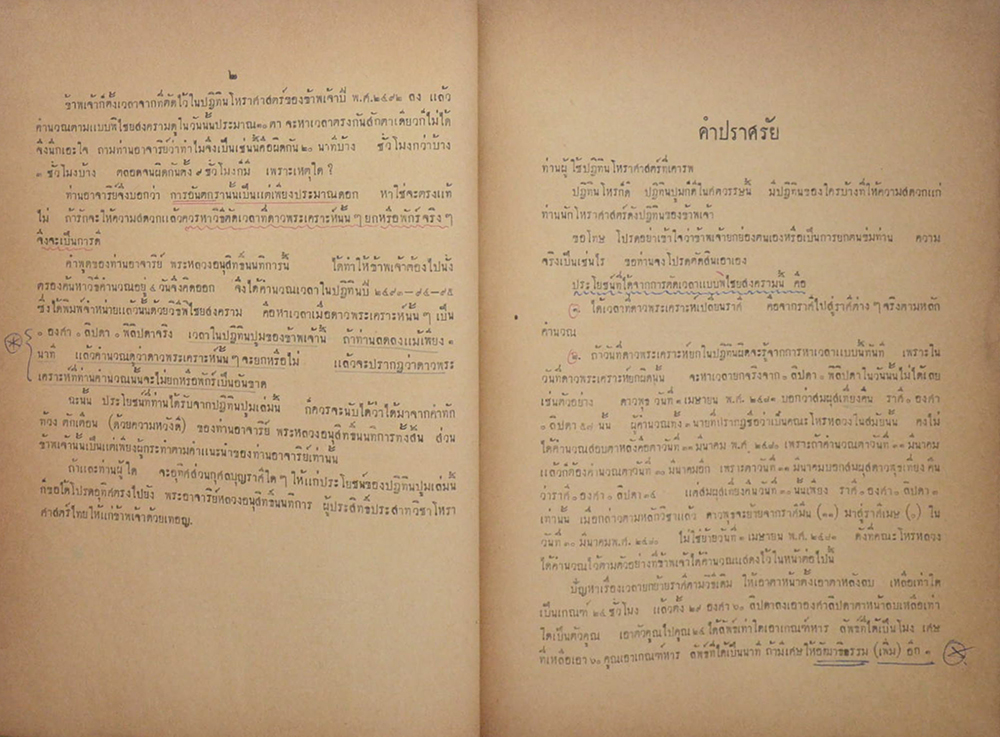 ๒
ข้าพเจ้าก็ตั้งเวลาจากที่คัดไว้ในปฏิทินโหราศาสตร์ของข้าพเจ้าปี พ.ศ.๒๔๙๒ ลง แล้ว
คำนวณตามแบบพิไชยสงครามดูในวันนั้นประมาณ๓๐ตา จะหาเวลาตรงกันสักตาเดียวก็ไม่ได้
จึงนึกเอะใจ ถามท่านอาจารย์ว่าทำไมจึงเป็นเช่นนี้คือผิดกัน ๒๐ นาทีบ้าง ชั่วโมงกว่าบ้าง
๓ ชั่วโมงบ้าง ตลอดจนผิดกันตั้ง ๙ ชั่วโมงก็มี เพราะเหตุใด ?
ท่านอาจารย์จึงบอกว่า การอันตกรานั้นเป็นแต่เพียงประมาณดอก หาใช่จะตรงแท้
ไม่ ถ้ารักจะให้ความสดวกแล้วควรหาวิธีคิดเวลาที่ดาวพระเคราะห์นั้น ๆ ยกหรือพักร์จริง ๆ
จึงจะเป็นการดี
คำพูดของท่านอาจารย์ พระหลวงอนุสิทธิ์นนทิการนี้ ได้ทำให้ข้าพเจ้าต้องไปนั่ง
ตรองค้นหาวิธีคำนวณอยู่ ๔ วันจึงคิดออก จึงได้คำนวณเวลาในปฏิทินปี ๒๔๙๓–๙๔–๙๕
ซึ่งได้พิมพ์จำหน่ายแล้วนั้นด้วยวิธีพิไชยสงคราม คือหาเวลาเมื่อดาวพระเคราะห์นั้น ๆ เป็น
๐ องศา ๐ ลิปดา ๐ พิลิปดาจริง เวลาในปฏิทินปูมของข้าพเจ้านี้ ถ้าท่านลดลงแม้เพียง ๑
นาที แล้วคำนวณดูว่าดาวพระเคราะห์นั้น ๆ จะยกหรือไม่ แล้วจะปรากฏว่าดาวพระ
เคราะห์ที่ท่านคำนวณนั้นจะไม่ยกหรือพักร์เป็นอันขาด
ฉะนั้น ประโยชน์ที่ท่านได้รับจากปฏิทินปูมเล่มนี้ ก็ควรจะนับได้ว่าได้มาจากคำทัก
ท้วง ตักเตือน (ด้วยความหวังดี) ของท่านอาจารย์ พระหลวงอนุสิทธิ์นนทิการทั้งสิ้น ส่วน
ข้าพเจ้านั้นเป็นแต่เพียงผู้กระทำตามคำแนะนำของท่านอาจารย์เท่านั้น
ถ้าแลท่านผู้ใด จะอุทิศส่วนกุศลบุญราศีใด ๆ ให้แก่ประโยชน์ของปฏิทินปูมเล่มนี้
ก็ขอได้โปรดอุทิศตรงไปยัง พระอาจารย์หลวงอนุสิทธิ์นนทิการ ผู้ประสิทธิ์ประสาทวิชาโหรา
ศาสตร์ไทยให้แก่ข้าพเจ้าด้วยเทอญ.
คำปราศรัย
ท่านผู้ใช้ปฏิทินโหราศาสตร์ที่เคารพ
ปฏิทินโหรก็ดี ปฏิทินปูมก็ดีในศตวรรษนี้ มีปฏิทินของใครบ้างที่ให้ความสดวกแก่
ท่านนักโหราศาสตร์ดังปฏิทินของข้าพเจ้า
ขอโทษ โปรดอย่าเข้าใจว่าข้าพเจ้ายกย่องตนเองหรือเป็นการยกตนข่มท่าน ความ
จริงเป็นเช่นไร ขอท่านจงโปรดตัดสินเอาเอง
ประโยชน์ที่ได้จากการคิดเวลาแบบพิไชยสงครามนี้ คือ
๑. ได้เวลาที่ดาวพระเคราะห์เปลี่ยนราศี คือจากราศีไปสู่ราศีต่าง ๆ จริงตามหลัก
คำนวณ
๒. ถ้าวันที่ดาวพระเคราะห์ยกในปฏิทินผิดจะรู้จากการหาเวลาแบบนี้ทันที เพราะใน
วันที่ดาวพระเคราะห์ยกผิดนั้น จะหาเวลายกจริงจาก ๐ ลิปดา ๐ พิลิปดาในวันนั้นไม่ได้เลย
เช่นตัวอย่าง ดาวพุธ วันที่ ๑ เมษายน พ.ศ. ๒๔๘๑ บอกว่าสมผุสเที่ยงคืน ราศี ๐ องศา
๐ ลิปดา ๕๘ นั้น ผู้คำนวณทั้ง ๓ นายที่ปรากฏชื่อว่าเป็นคณะโหรหลวงในสมัยนั้น คงไม่
ได้คำนวณสอบตาหลังคือดาวันที่ ๓๑ มีนาคม พ.ศ. ๒๔๘๐ เพราะถ้าคำนวณตาวันที่ ๓๑ มีนาคม
แล้วก็ต้องคำนวณตาวันที่ ๓๐ มีนาคมอีก เพราะตาวันที่ ๓๑ มีนาคมบอกสมผุสดาวพุธเที่ยงคืน
ว่าราศี ๐ องศา ๐ ลิปดา ๓๕ แต่สมผุสเที่ยงคืนวันที่ ๓๐ นั้นเพียง ราศี ๐ องศา ๐ ลิปดา ๑
เท่านั้น เมื่อกล่าวตามหลักวิชาแล้ว ดาวพุธจะย้ายจากราศีมีน (๑๑) มาสู่ราศีเมษ (๐) ใน
วันที่ ๓๐ มีนาคมพ.ศ. ๒๔๘๐ ไม่ใช่ย้ายวันที่ ๑ เมษายน พ.ศ. ๒๔๘๑ ดังที่คณะโหรหลวง
ได้คำนวณไว้ตามตัวอย่างที่ข้าพเจ้าได้คำนวณแสดงไว้ในหน้าต่อไปนี้
ปัญหาเรื่องเวลายกย้ายราศีตามวิธีเดิม ให้เอาตาหน้าตั้งเอาตาหลังลบ เหลือเท่าใด
เป็นเกณฑ์ ๒๔ ชั่วโมง แล้วตั้ง ๒๙ องศา ๖๐ ลิปดาลงเอาองศาลิปดาตาหน้าลบเหลือเท่า
ใดเป็นตัวคูณ เอาตัวคูณไปคูณ ๒๔ ได้ลัพธ์เท่าใดเอาเกณฑ์หาร ลัพธ์ที่ได้เป็นโมง เศษ
ที่เหลือเอา ๖๐ คูณเอาเกณฑ์หาร ลัพธ์ที่ได้เป็นนาที ถ้ามีเศษให้อัฒาธิกรรม (เพิ่ม) อีก ๑